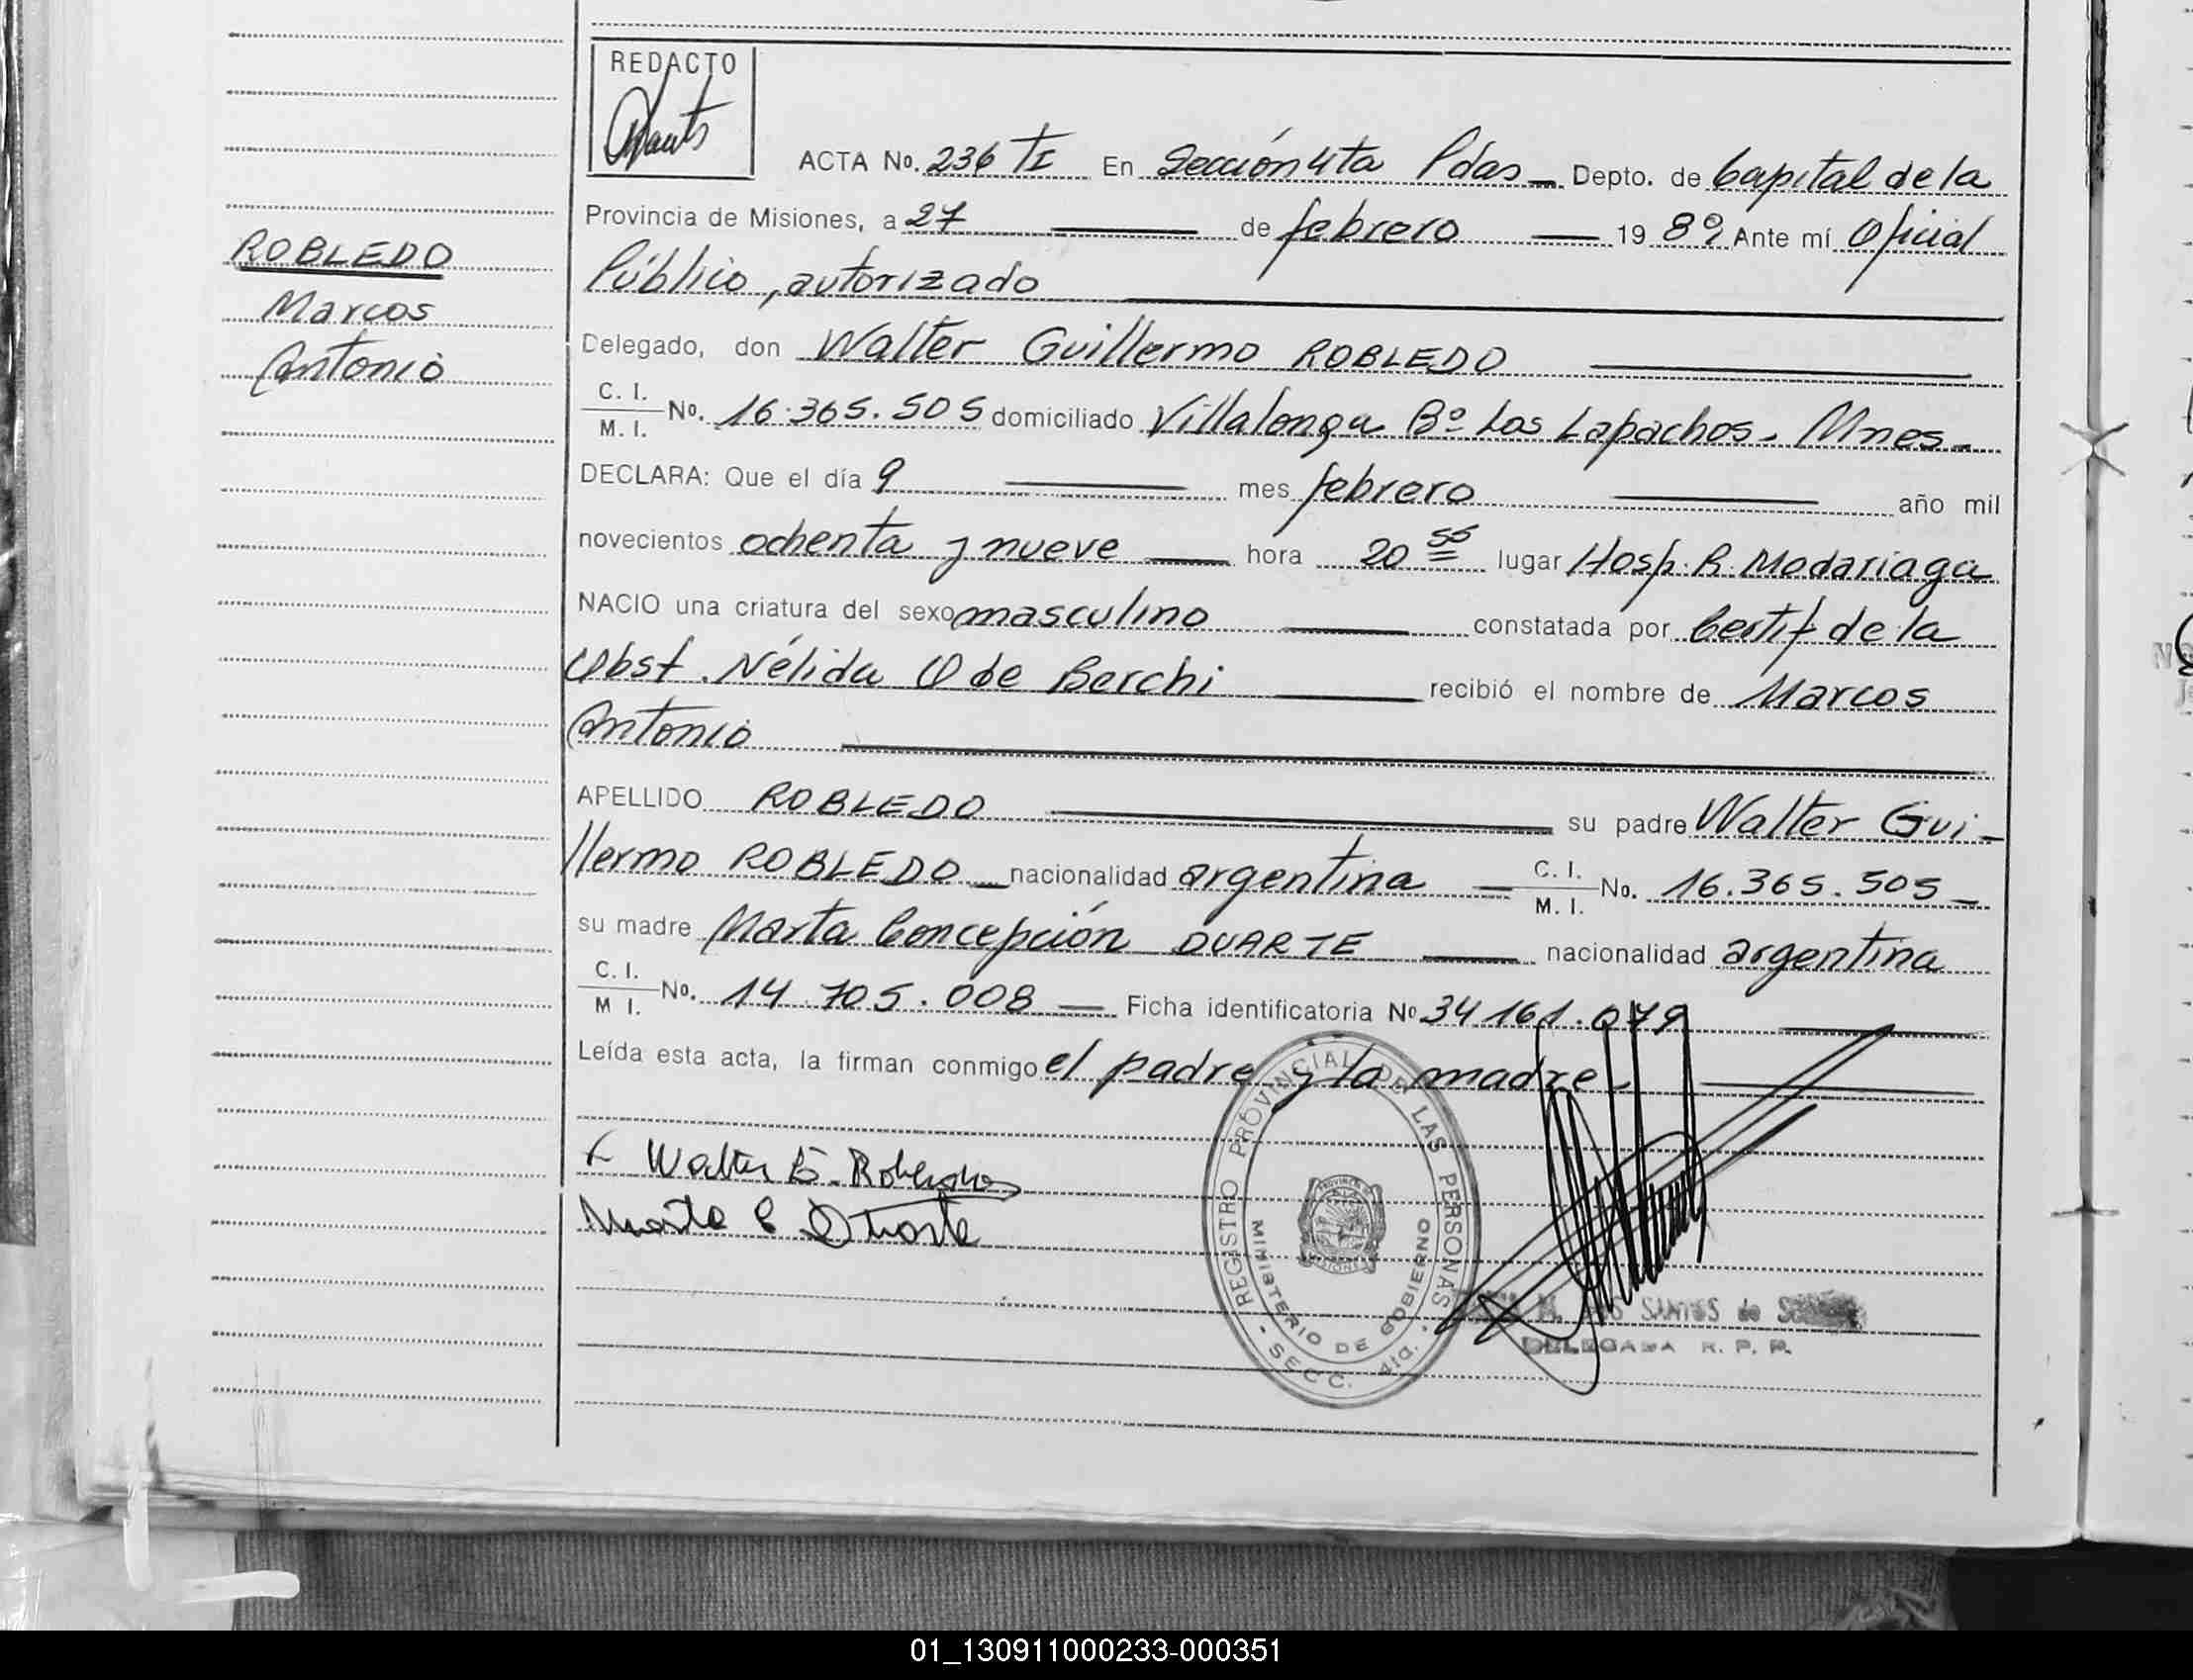 REDACTO
ACTA No. 236 TI En Sección 4ta Pdas Depto. de Capital de la
Provincia de Misiones, a 27 de febrero 1989 Ante mí Oficial
Público, autorizado
ROBLEDO
Marcos
Antonio
Delegado, don Walter Guillermo ROBLEDO
C. I.
M. I. No. 16.365.505 domiciliado Villalonga Bº Los Lapachos. Mnes.
DECLARA: Que el día 9 mes febrero año mil
novecientos ochenta y nueve hora 20 55 lugar Hosp. R. Madariaga
NACIO una criatura del sexo masculino constatada por Certif de la
Obst. Nélida O de Berchi recibió el nombre de Marcos
Antonio
APELLIDO ROBLEDO su padre Walter Gui-
llermo ROBLEDO nacionalidad argentina C. I. M. I. No. 16.365.505
su madre Marta Concepción DUARTE nacionalidad argentina
C. I.
M I. No. 14.705.008 Ficha identificatoria No 34 161.079
Leída esta acta, la firman conmigo el padre y la madre.
Walter G. Robledo
Marta C Duarte
REGISTRO PROVINCIAL DE LAS PERSONAS
MINISTERIO DE GOBIERNO
- SECC. 4ta. -
PROVINCIA DE
MISIONES
SANTOS de
DELEGADA R. P. P.
01_130911000233-000351